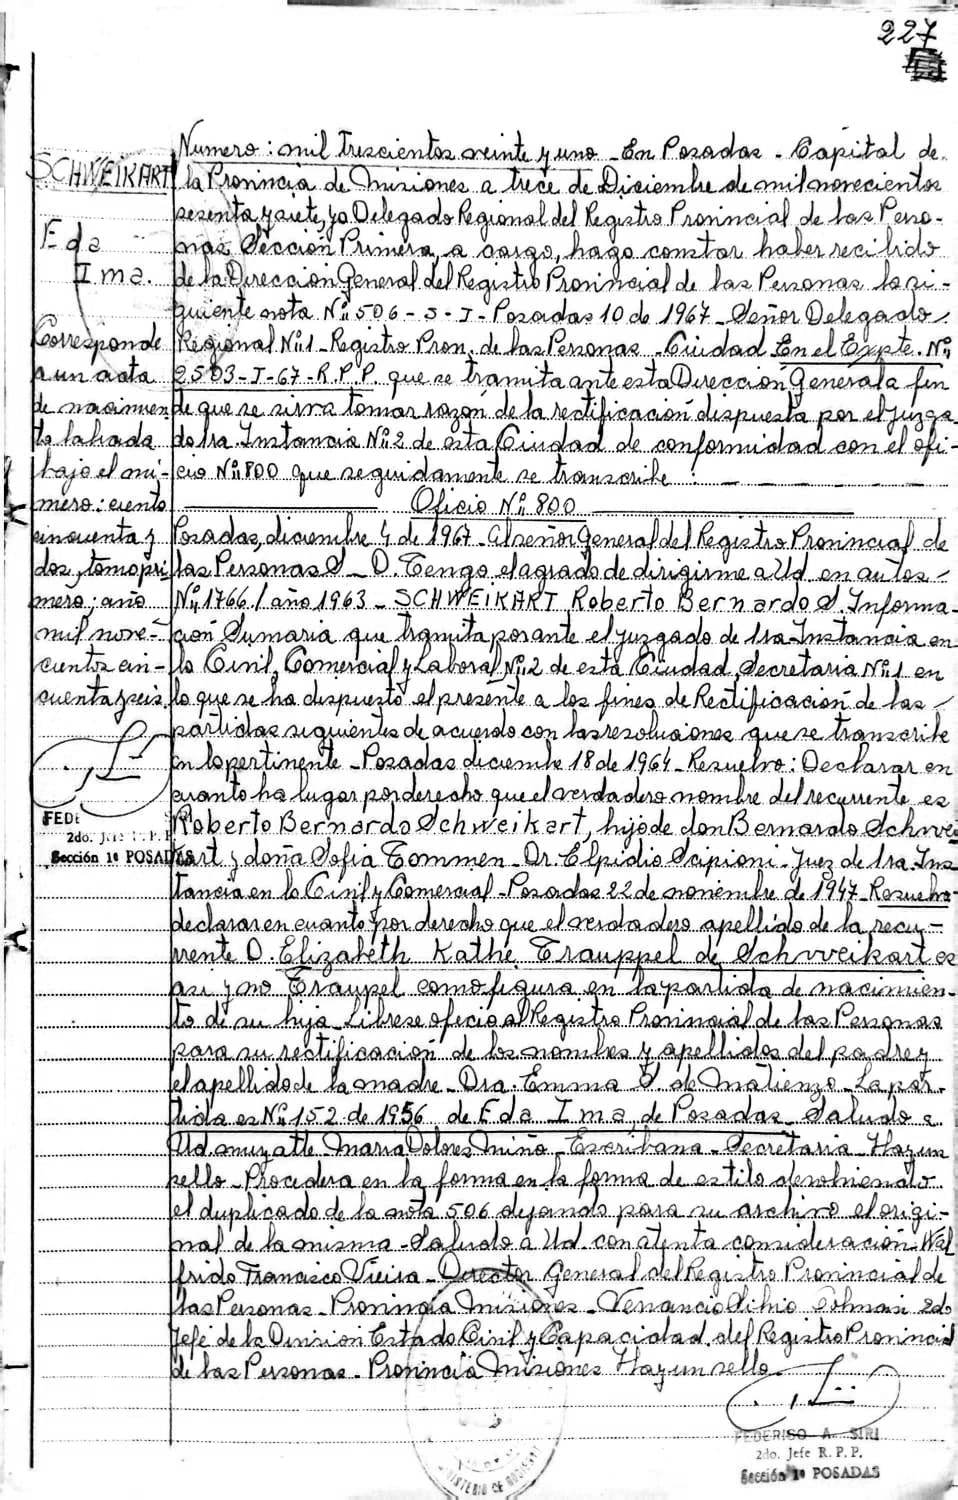 227
SCHWEIKART
Eda
Ima.
Corresponde
a un acta
de nacimien
to labrada
bajo el nú-
mero: ciento
cincuenta y
dos, tomo pri
mero; año
mil nove-
cientos cin-
cuenta y seis
FEDE
2do. Jefe R. P. P.
Sección 1º POSADAS
Numero: mil trescientos veinte y uno - En Posadas - Capital de
la Provincia de Misiones a trece de Diciembre de mil novecientos
sesenta y siete, yo Delegado Regional del Registro Provincial de las Perso-
nas, Sección Primera, a cargo, hago constar haber recibido
de la Dirección General del Registro Provincial de las Personas la si-
guiente nota Nº 506 - S - J - Posadas 10 de 1967 - Señor Delegado
Regional Nº 1 - Registro Prov. de las Personas - Ciudad En el Expte. Nº
2503 - J - 67 - R.P.P. que se tramita ante esta Dirección General a fin
de que se sirva tomar razón de la rectificación dispuesta por el juzga
do 1ra. Instancia Nº 2 de esta Ciudad de conformidad con el ofi-
cio Nº 800 que seguidamente se transcribe:
Oficio Nº 800
Posadas, diciembre 4 de 1967 - Al señor General del Registro Provincial de
las Personas S - D. Tengo el agrado de dirigirme a Ud en autos
Nº 1766 / año 1963 - SCHWEIKART Roberto Bernardo S. Informa-
ción Sumaria que tramita por ante el juzgado de 1ra Instancia en
lo Civil, Comercial y Laboral Nº 2 de esta Ciudad, Secretaria Nº 1 en
lo que se ha dispuesto el presente a los fines de Rectificación de las
partidas siguientes de acuerdo con las resoluciones que se transcribe
en lo pertinente - Posadas diciembre 18 de 1964 - Resuelvo: Declarar en
cuanto ha lugar por derecho que el verdadero nombre del recurrente es
Roberto Bernardo Schweikart, hijo de don Bernardo Schwei
kart y doña Sofia Tommen - Dr. Elpidio Scipioni - Juez de 1ra. Ins
tancia en lo Civil y Comercial - Posadas 22 de noviembre de 1947 - Resuelvo -
declarar en cuanto por derecho que el verdadero apellido de la recu-
rrente D. Elizabeth Kathe Trauppel de Schvveikart es
asi y no Traupel como figura en la partida de nacimien-
to de su hija - Librese oficio al Registro Provincial de las Personas
para su rectificación de los nombres y apellidos del padre y
el apellido de la madre - Dra. Emma S. de Matienzo - La par-
tida es Nº 152 de 1956 de Eda Ima, de Posadas - Saludo a
Ud muy atte - Maria Dolores Miño - Escribana - Secretaria - Hay un
sello - Procedera en la forma en la forma de estilo devolviendo
el duplicado de la nota 506 dejando para su archivo el origi-
nal de la misma - Saludo a Ud. con atenta consideración - Wal
frido Francisco Vieira - Director General del Registro Provincial de
las Personas - Provincia Misiones - Venancio Silvio 2do
Jefe de la Division Estado Civil y Capacidad del Registro Provincial
de las Personas - Provincia Misiones Hay un sello
FEDERISO A. SIRI
2do. Jefe R. P. P.
Sección 1º POSADAS